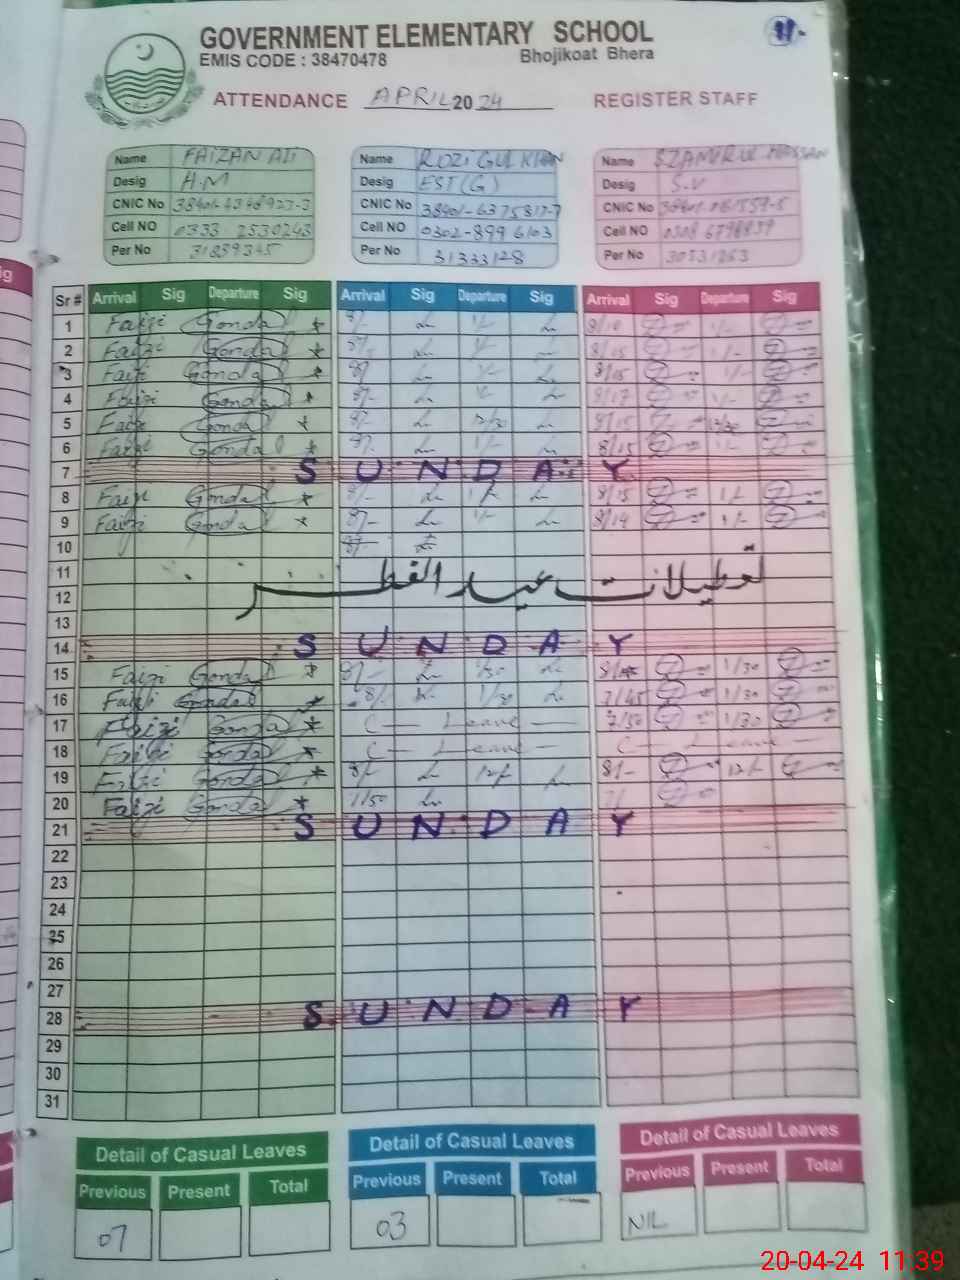 GOVERNMENT ELEMENTARY SCHOOL
11-
EMIS CODE : 38470478 Bhojikoat Bhera
ATTENDANCE APRIL 2024 REGISTER STAFF
Name FAIZAN ALI Name ROZI GUL KHAN Name
Desig H.M Desig EST(G) Desig S.V
CNIC No CNIC No 38401-6375817-7 CNIC No
Cell NO 0333 2530243 Cell NO 0302-899 6103 Cell NO
Per No 31859345 Per No 31333128 Per No
Sr # Arrival Sig Departure Sig Arrival Sig Departure Sig Arrival Sig Departure Sig
1 Faizi Gondal 8/- 1/- 8/10 1/-
2 Faizi Gondal 8/- 8/15 1/-
3 Faizi Gondal 8/15 1/-
4 Faizi Gondal 8/- 8/17 1/-
5 Faizi Gondal 8/- 12/30 8/15
6 Faizi Gondal 8/- 1/- 8/15
7 SUNDAY
8 Faizi Gondal 8/- 1/- 8/15 1/-
9 Faizi Gondal 8/- 1/- 8/14 1/-
10 8/-
11
تعطیلات عید الفطر
12
13
14 SUNDAY
15 Faizi Gondal 8/- 1/30 1/30
16 Faizi Gondal 8/- 1/30 7/45 1/30
17 Faizi Gondal C - Leave - 7/50 1/30
18 Faizi Gondal C - Leave - C - Leave -
19 Faizi Gondal 8/- 12/- 8/- 12/-
20 Faizi Gondal 7/50
21 SUNDAY
22
23
24
25
26
27
28 SUNDAY
29
30
31
Detail of Casual Leaves Detail of Casual Leaves Detail of Casual Leaves
Previous Present Total Previous Present Total Previous Present Total
07 03 NIL
20-04-24 11:39